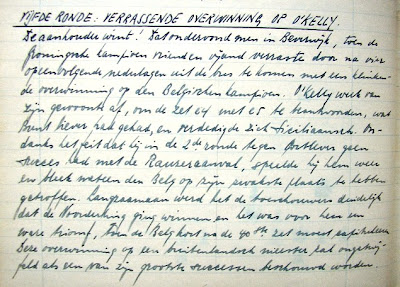 VIJFDE RONDE: VERRASSENDE OVERWINNING OP O'KELLY.
De aanhouder wint! Dat ondervond men in Beverwijk, toen de
Groningsche kampioen vriend en vijand verraste door na vier
opeenvolgende nederlagen uit de bus te komen met een klinken-
de overwinning op den Belgischen kampioen. O'Kelly week van
zijn gewoonte af, om de zet e4 met e5 te beantwoorden, wat
steeds succes had gehad, en verdedigde zich Siciliaansch. On-
danks het feit dat hij in de 2de ronde tegen Botlever geen
succes had met de Rauzeraanval, speelde hij hem weer
en bleek wateen den Belg op zijn zwakste plaats te hebben
getroffen. Langzaamaan werd het de toeschouwers duidelijk
dat de Noorderling ging winnen en het was voor hem een
ware triomf, toen de Belg kort na de 40ste zet moest capituleeren
Deze overwinning op een buitenlandsch meester zal ongetwij-
feld als een van zijn grootste successen beschouwd worden